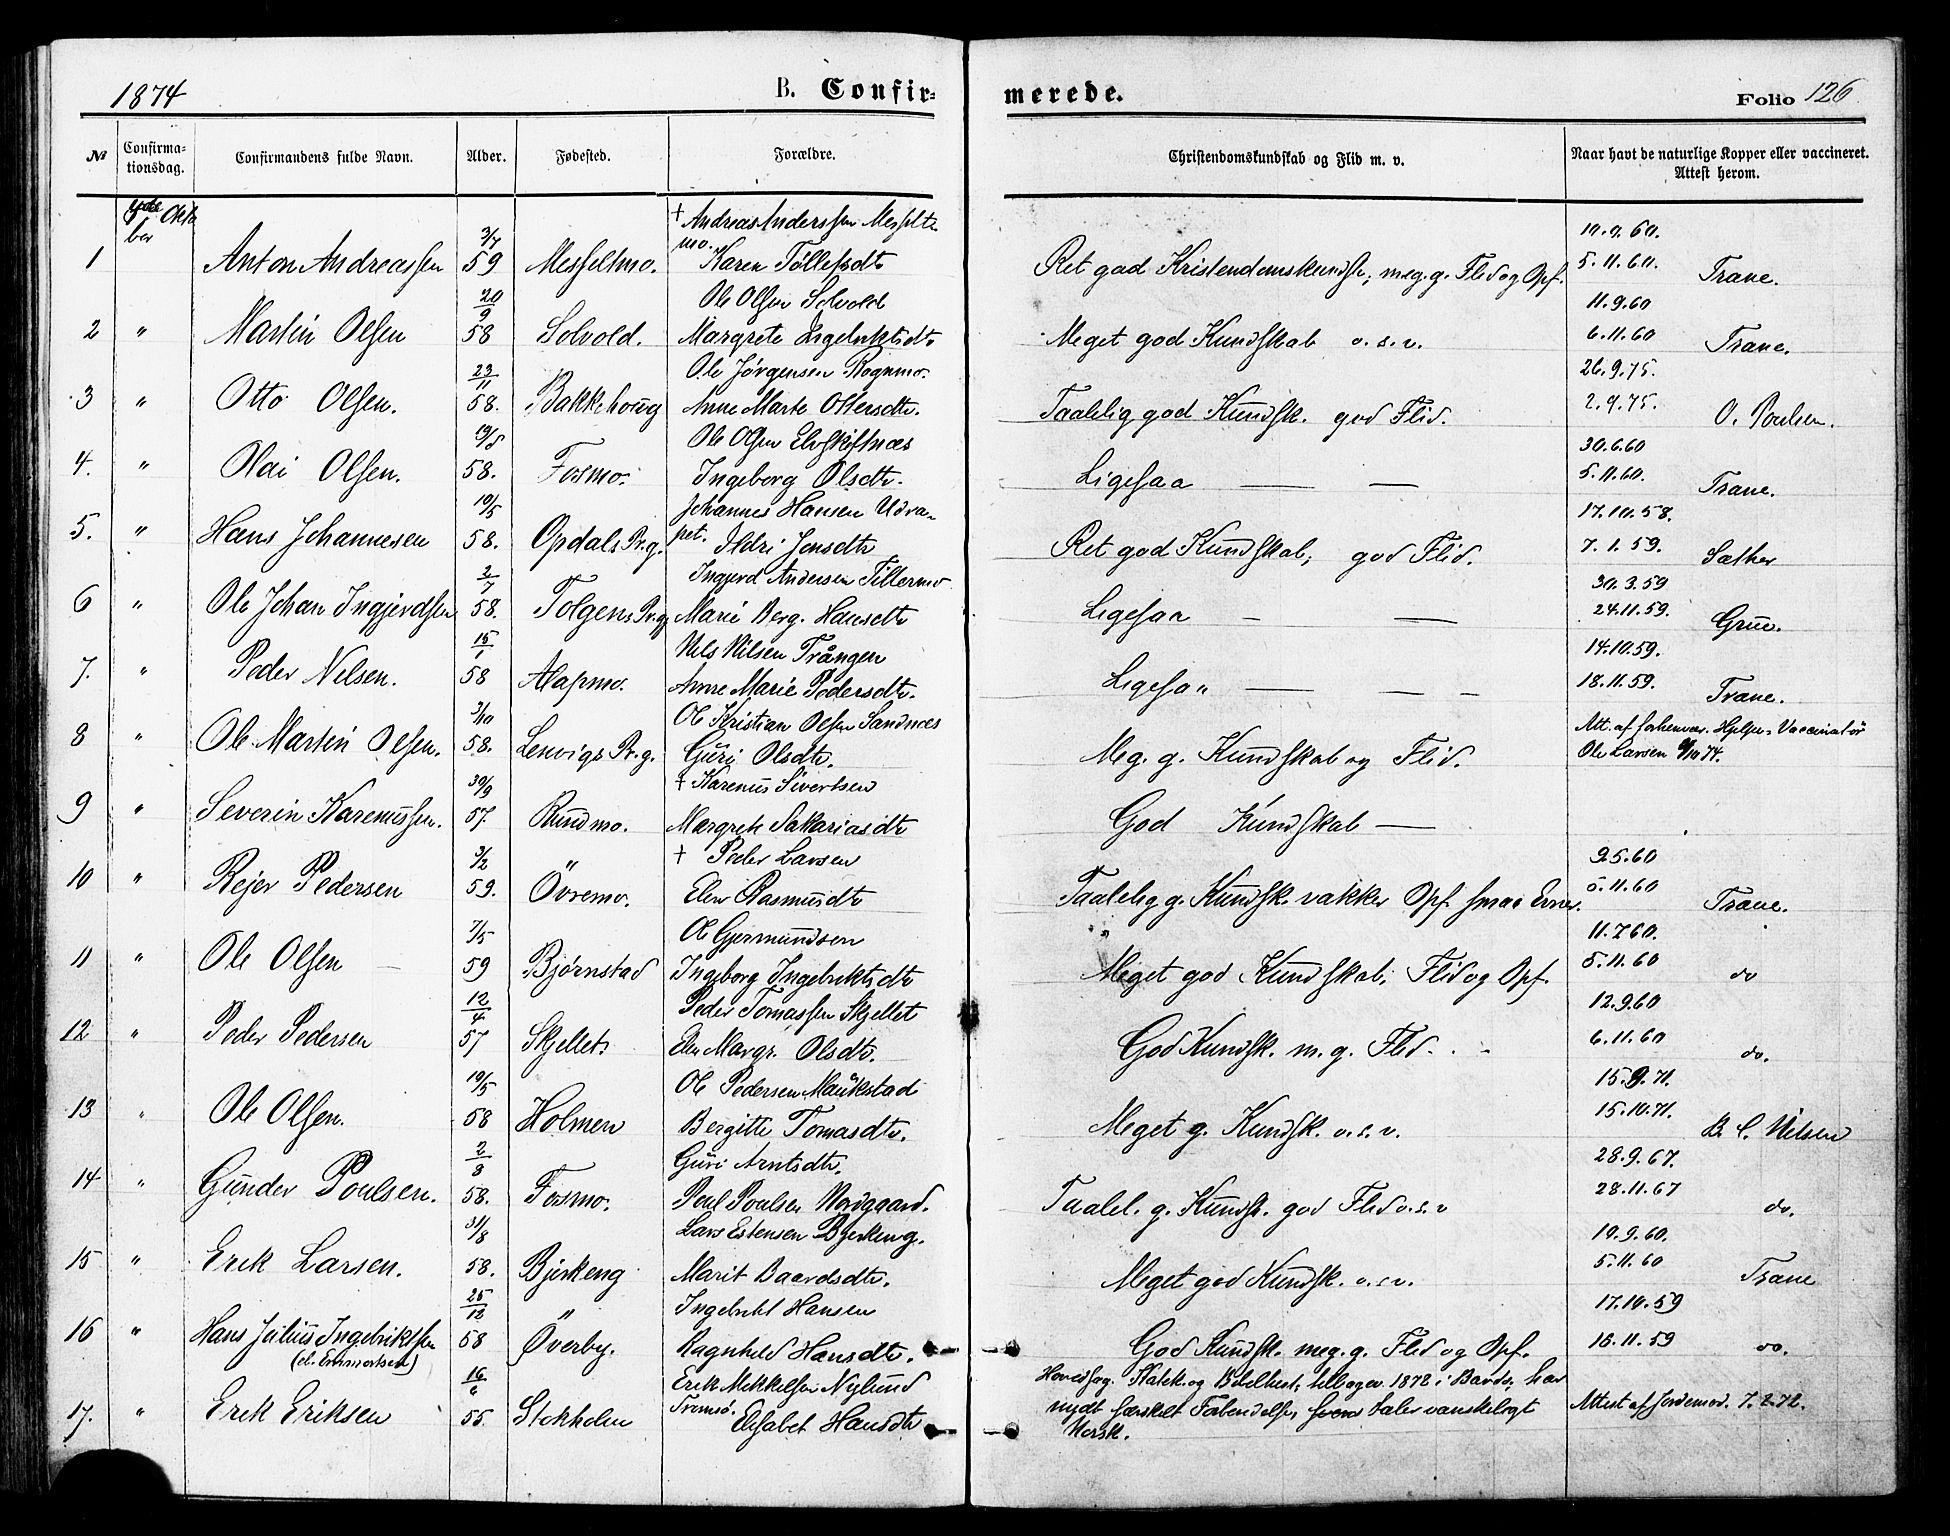 1874 B. Confir= merede. Folio 126
№ Confirma- tionsdag. Confirmandens fulde Navn. Alder. Fødested. Forældre. Christendomskundskab og Flid m. v. Naar havt de naturlige Kopper eller vaccineret. Attest herom.
Okto
ber
† Andreas Anderssen Messelt-
mo.
1 Anton Andreassen 3/7 59 Messeltmo. Karen Tollefsdtr Ret god Kristendomskundsk, meg. g. Flid og Opf. 5.11.60. Trane.
Ole Olsen Solvold 11.9.60
2 " Martin Olsen 20/9 58 Solvold. Margrete Ingebriktsdtr Meget god Kundskab o.s.v. 6.11.60 Trane.
Ole Jørgensen Rognmo. 26.9.75.
3 " Otto Olsen. 23/11 58. Bakkehoug Anne Marte Ottersdtr. Taalelig god Kundsk. god Flid. 2.9.75. O. Poulsen.
Ole Olsen Elvskiftnæs 30.6.60
4. " Olai Olsen. 19/8 58. Fosmo. Ingeborg Olsdtr. Ligesaa — — 5.11.60. Trane.
Johannes Hansen 17.10.58.
5. " Hans Johannesen 10/5 58. Opdals Pr.g. Jensdtr Ret god Kundskab, god Flid. 7.1.59. Sæther
Ingjerd Andersen Tillermo 30.3.59
6 " Ole Johan Ingjerdsen 2/7 58. Tolgens Pr.g. Marie Berg. Hansdtr Ligesaa — — 24.11.59. Grue.
Nels Nilsen Trången 14.10.59.
7. " Peder Nelsen. 15/1 58 Alapmo. Anne Marie Pedersdtr. Ligesaa — — — 18.11.59. Trane.
Ole Kristian Olsen Sandnæs Att. af forhenvær. Hjelpe-Vaccinatør
8 " Ole Martin Olsen. 3/10 58. Lenvigs Pr.g. Guri Olsdtr. Meg. g. Kundskab og Flid. Ole Larsen
† Karenus Sivertsen
9 " Severin Karenussen. 30/9 57. Rundmo. Margrete Sakariasdtr God Kundskab —
† Peder Larsen 9.5.60
10 " Rejer Pedersen 3/2 59. Øvremo. Elen Rasmusdtr Taalelig g. Kundsk. vakker Opf. smaa Evner. 5.11.60 Trane.
Ole Gjermundsen 11.7.60.
11 " Ole Olsen — 7/5 59 Bjørnstad Ingeborg Ingebriktsdtr Meget god Kundskab, Flid og Opf. 5.11.60 do
Peder Tomassen Skjellet 12.9.60
12 " Peder Pedersen 12/4 57 Skjellet. Elen Margr. Olsdtr. God Kundsk. m. g. Flid. 6.11.60 do.
Ole Pedersen Maukstad 15.9.71.
13 " Ole Olsen. 10/5 58 Holmen Bergitte Tomasdtr. Meget g. Kundsk. o.s.v. 15.10.71. B. C. Nilsen
Guri Arntsdtr. 28.9.67.
14 " Gunder Poulsen. 2/8 58. Fosmo. Poul Poulsen Nordgaard. Taalel. g. Kundsk. god Flid o.s.v 28.11.67 do.
Lars Estensen Bjerkeng. 19.9.60.
15 " Erik Larsen. 31/8 58. Bjerkeng Marit Baardsdtr. Meget god Kundsk. o.s.v. 5.11.60 Trane
Ingebrikt Hansen 17.10.59
16 " Hans Julius Ingebriktsen 25/12 58 Øverby. Ragnhild Hansdtr. God Kundsk. meg. g. Flid og Opf. 16.11.59 do.
Erik Mikkelsen Nylund
17. " Erik Eriksen 16/6 55. Stokholm Tromsø. Elisabet Hansdtr nydt særskilt taler vanskeligt Attest af Jordemod. 7.2.72.
Norsk.